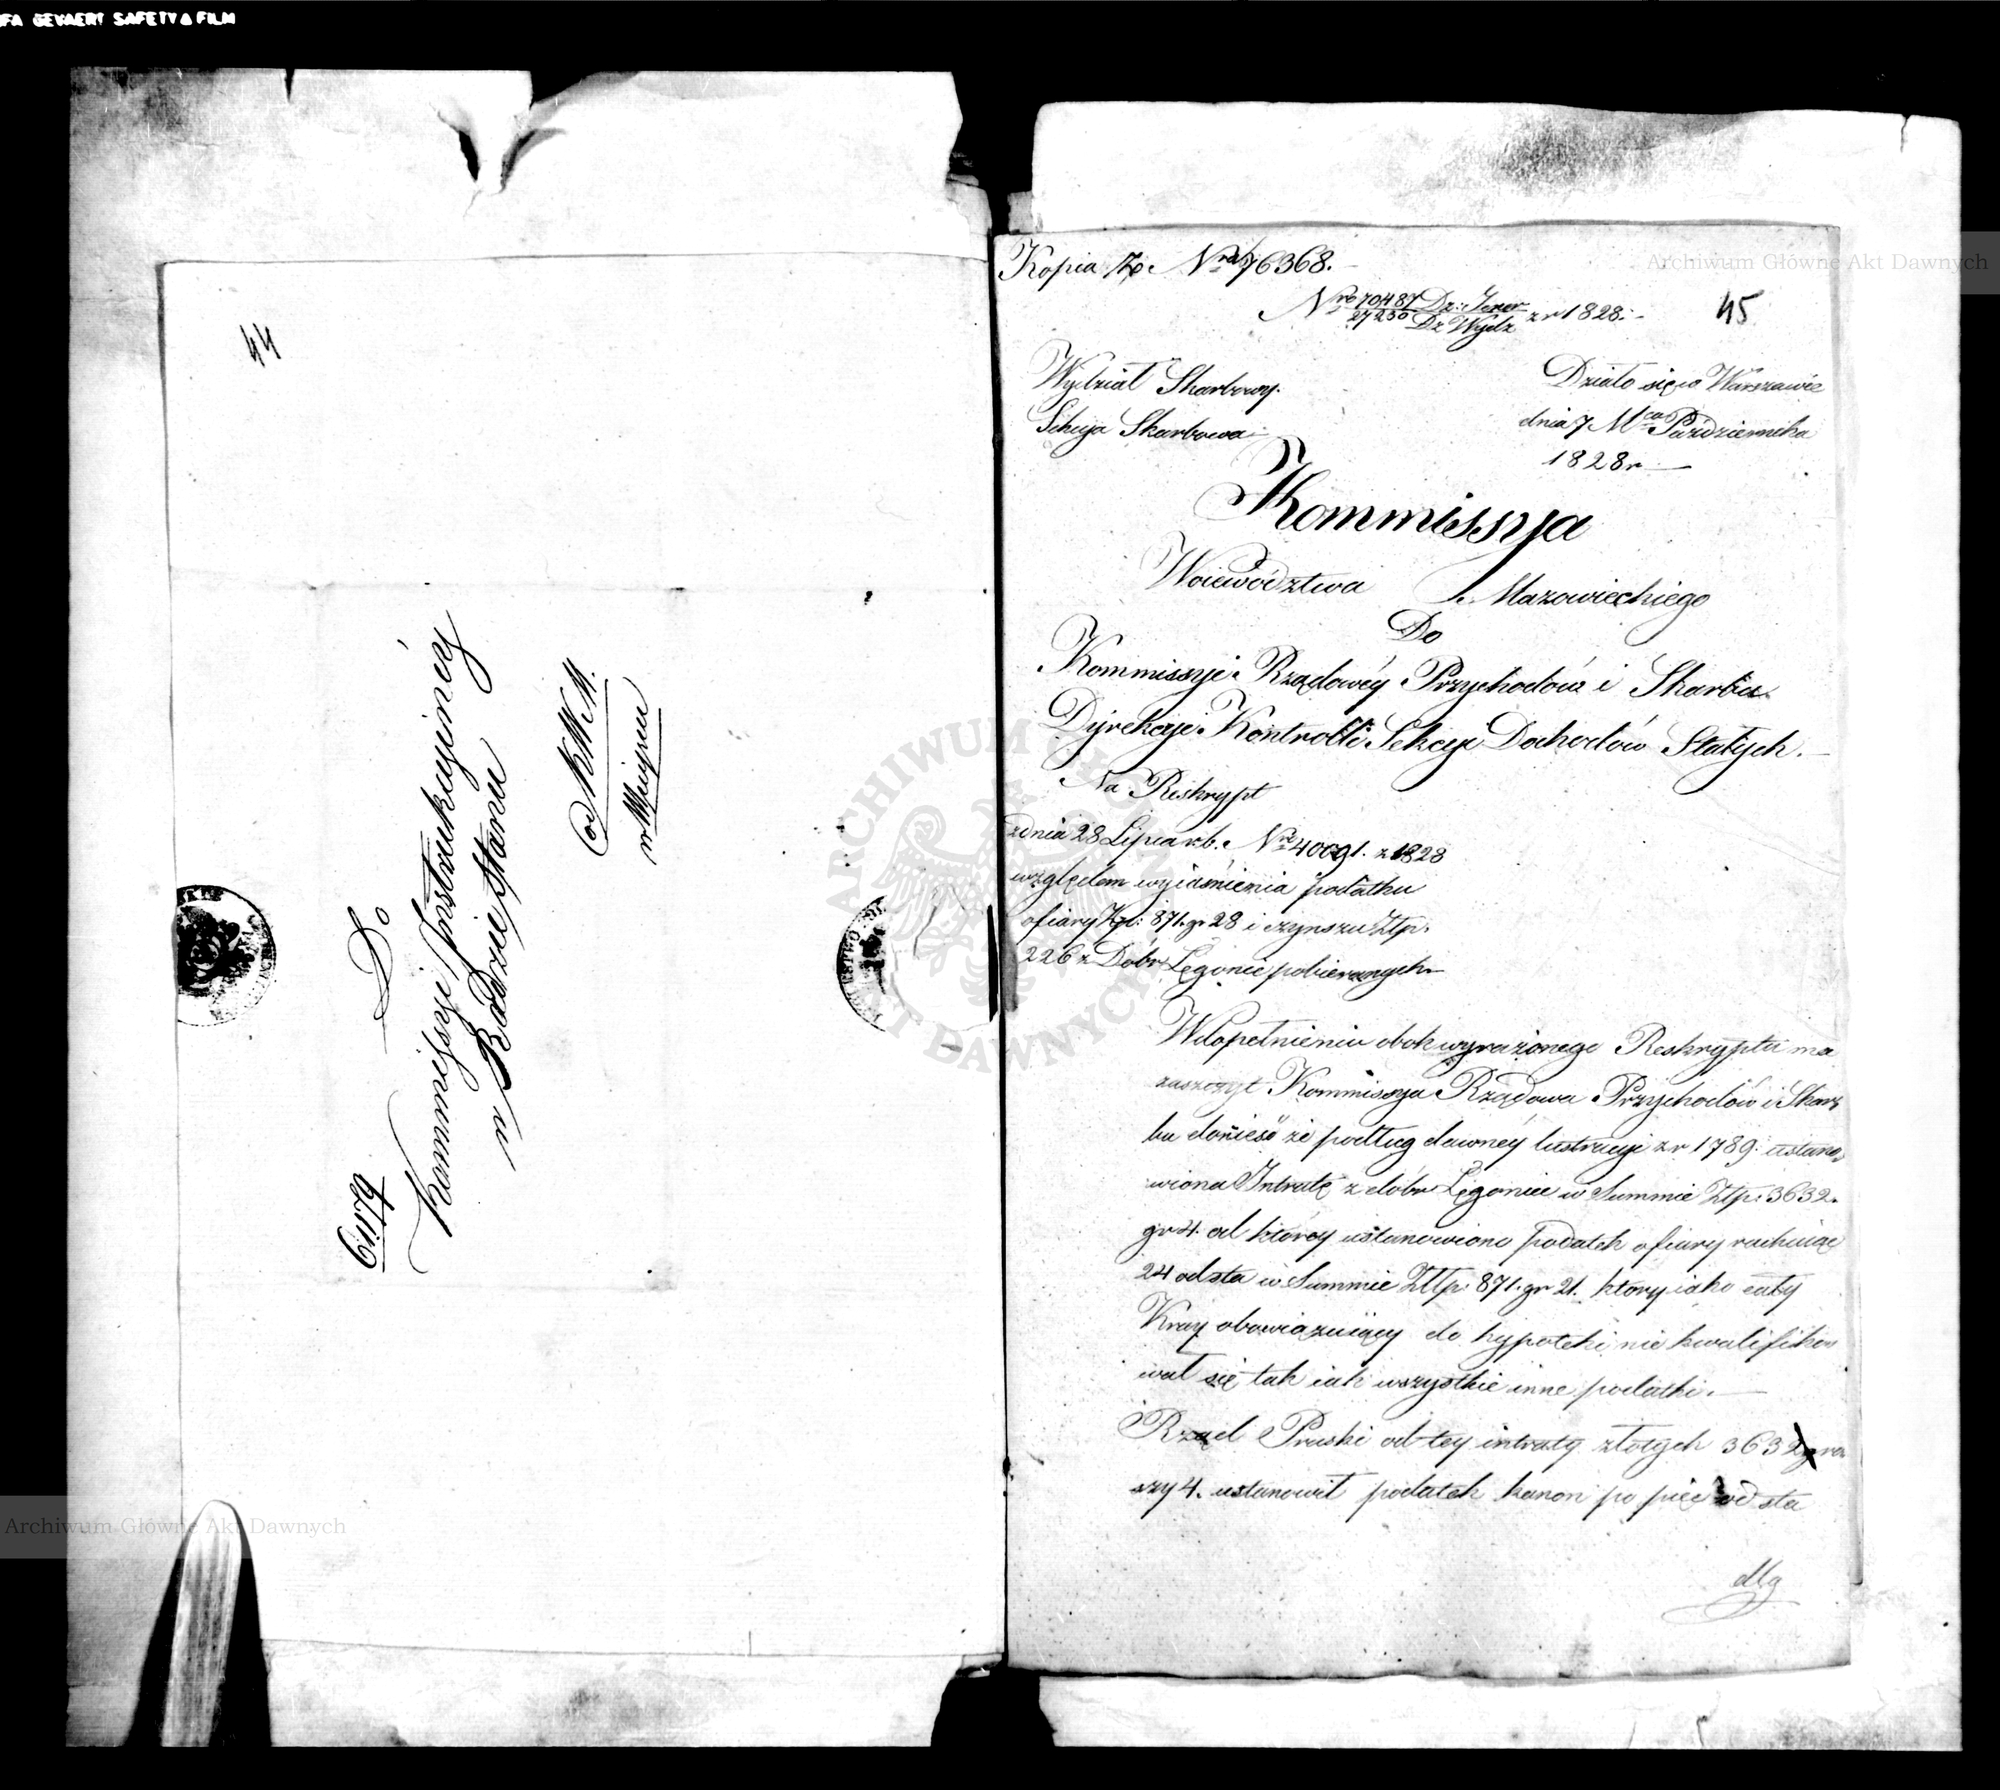 FA GEVAERT SAFETY FILM
44
Do
Kommissyi Instrukcyjnéy
w Radzie Stanu
od KWM.
Kopia do Nru 76368.
Nro 70487 Dz: Jener
27250 Dz Wydz z r 1828.
45
Wydział Skarbowy.
Sekcya Skarbowa
Działo się w Warszawie
dnia 7 Mca Października
1828 r
Kommissya
Woiewództwa Mazowieckiego
Do
Kommissyi Rządowéy Przychodów i Skarbu
Dyrekcyi Kontrolli Sekcyi Dochodów Stałych.
Na Reskrypt
z dnia 28 Lipca r.b. Nro 40091. z 1828
względem wyiaśnienia podatku
ofiary Złp: 871. gr 28 i czynszu Złp.
226 z Dóbr Łęgonie pobieranych
W dopełnieniu obok wyrażonego Reskryptu ma
zaszczyt Kommissya Rządowa Przychodów i Skar
bu donieść że podług dawnéy lustracyi z r 1789. ustano
wiona Intratę z dóbr Łęgonie w Summie Złp: 3632.
gr 4. od któréy ustanowiono podatek ofiary rachuiąc
24 od sta w Summie Złp: 871. gr 21. który iako cały
Kray obowiązuiący do hypoteki nie kwalifiko
wał się tak iak wszystkie inne podatki.
Rząd Pruski od tey intraty złotych 3632 gro
szy 4. ustanowił podatek kanon po pięć od sta
Archiwum Główne Akt Dawnych
Archiwum Główne Akt Dawnych
ARCHIWUM GŁÓWNE AKT DAWNYCH